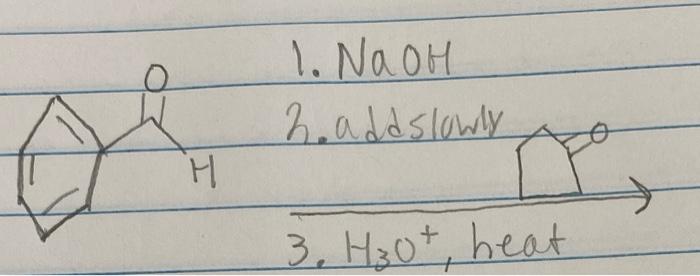 O
H
1. NaOH
2. add slowly
O
3. H₃O⁺, heat